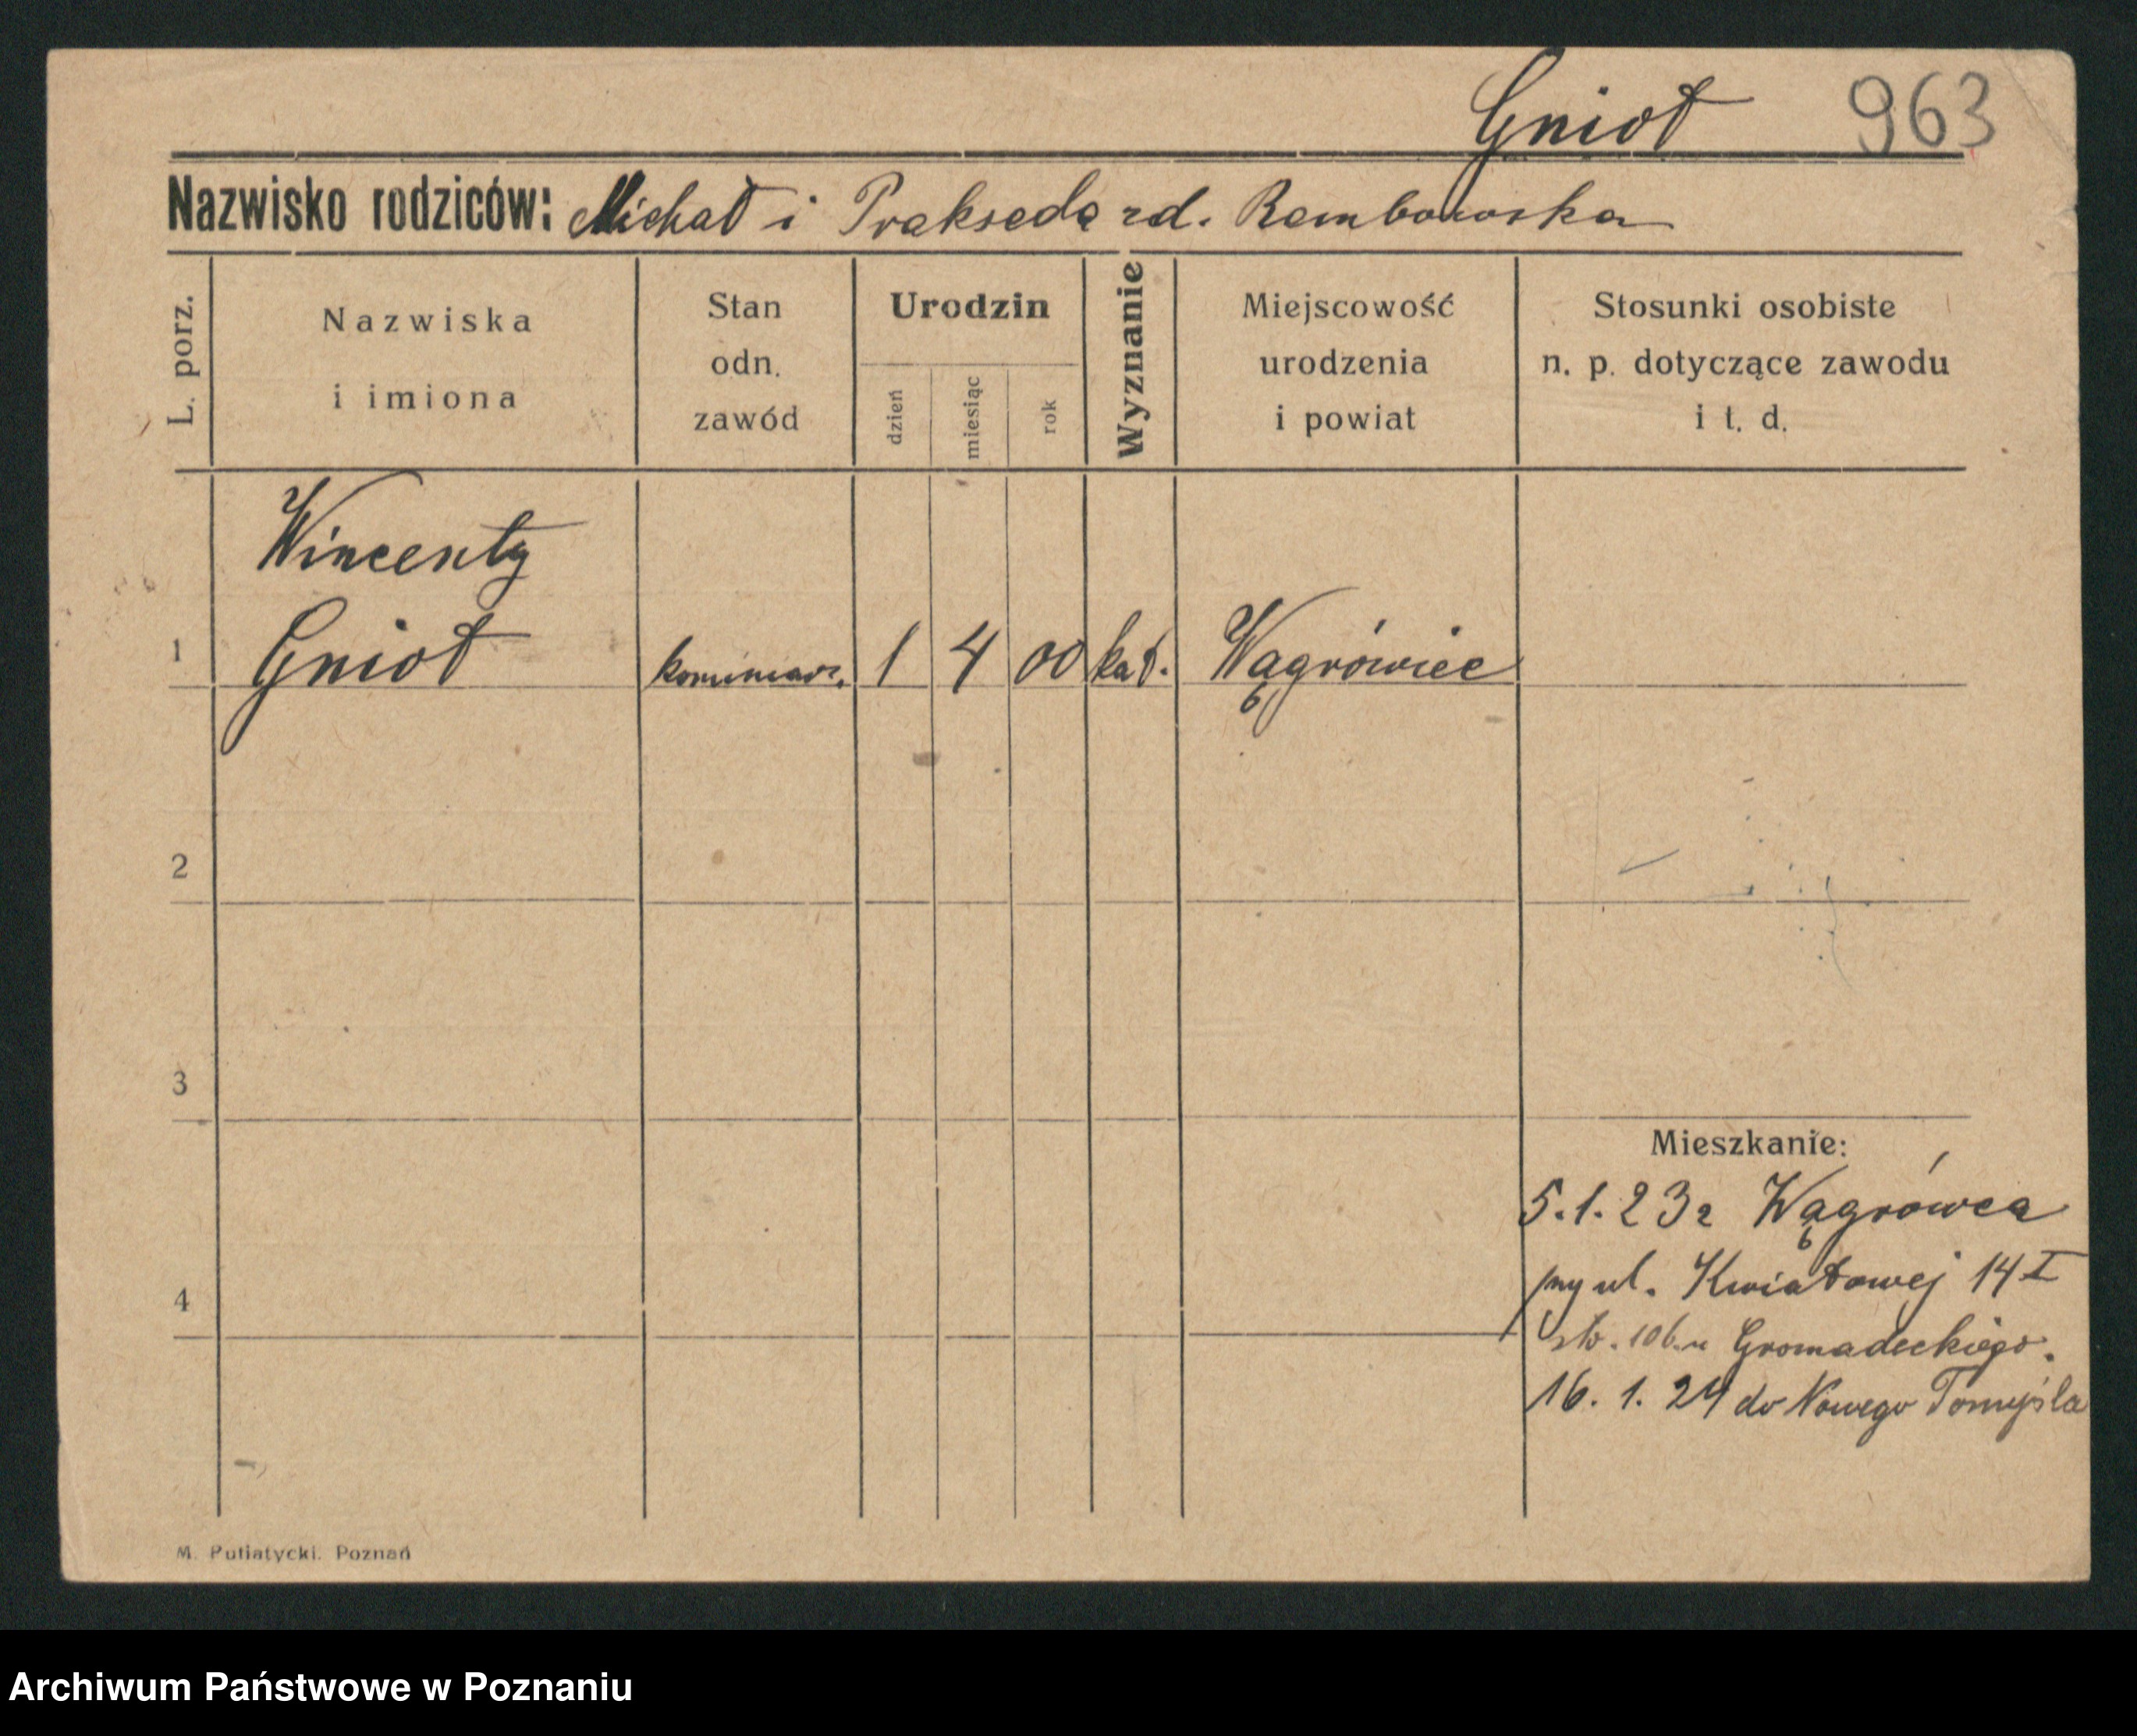 Gniot 963
Nazwisko rodziców: Michał i Prakseda zd. Rembowska
L. porz.
Nazwiska
i imiona
Stan
odn.
zawód
Urodzin
dzień
miesiąc
rok
Wyznanie
Miejscowość
urodzenia
i powiat
Stosunki osobiste
n. p. dotyczące zawodu
i t. d.
Wincenty
1 Gniot kominiarz. 1 4 00 kat. Wągrówiec
2
3
Mieszkanie:
5.1.23 z Wągrówca
przy ul. Kwiatowej 14 I
4
u Gromadeckiego.
16. 1. 24 do Nowego Tomyśla
M. Putiatycki. Poznań
Archiwum Państwowe w Poznaniu